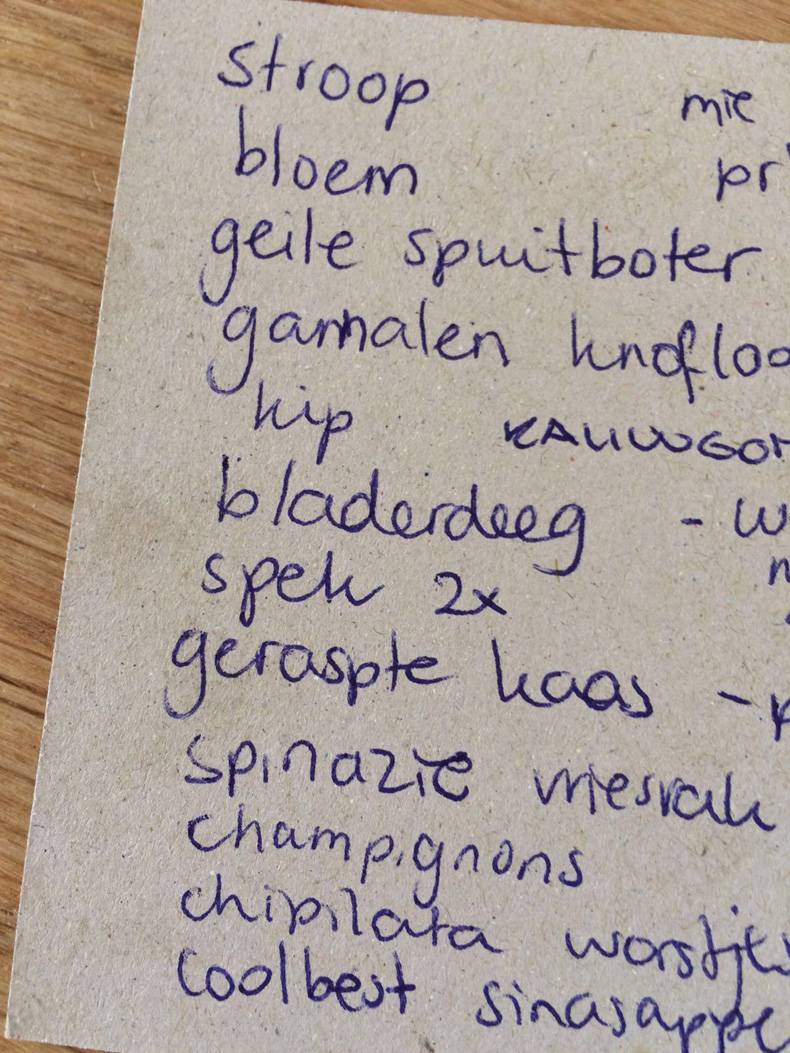 stroop mie
bloem pr
geile spuitboter
garnalen knofloo
kip
bladerdeeg - w
spek 2x
geraspte kaas -
spinazie vriesvak
champignons
chipilata worstjes
Coolbest sinasappe